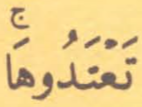 تَعْتَدُوهَاۚ